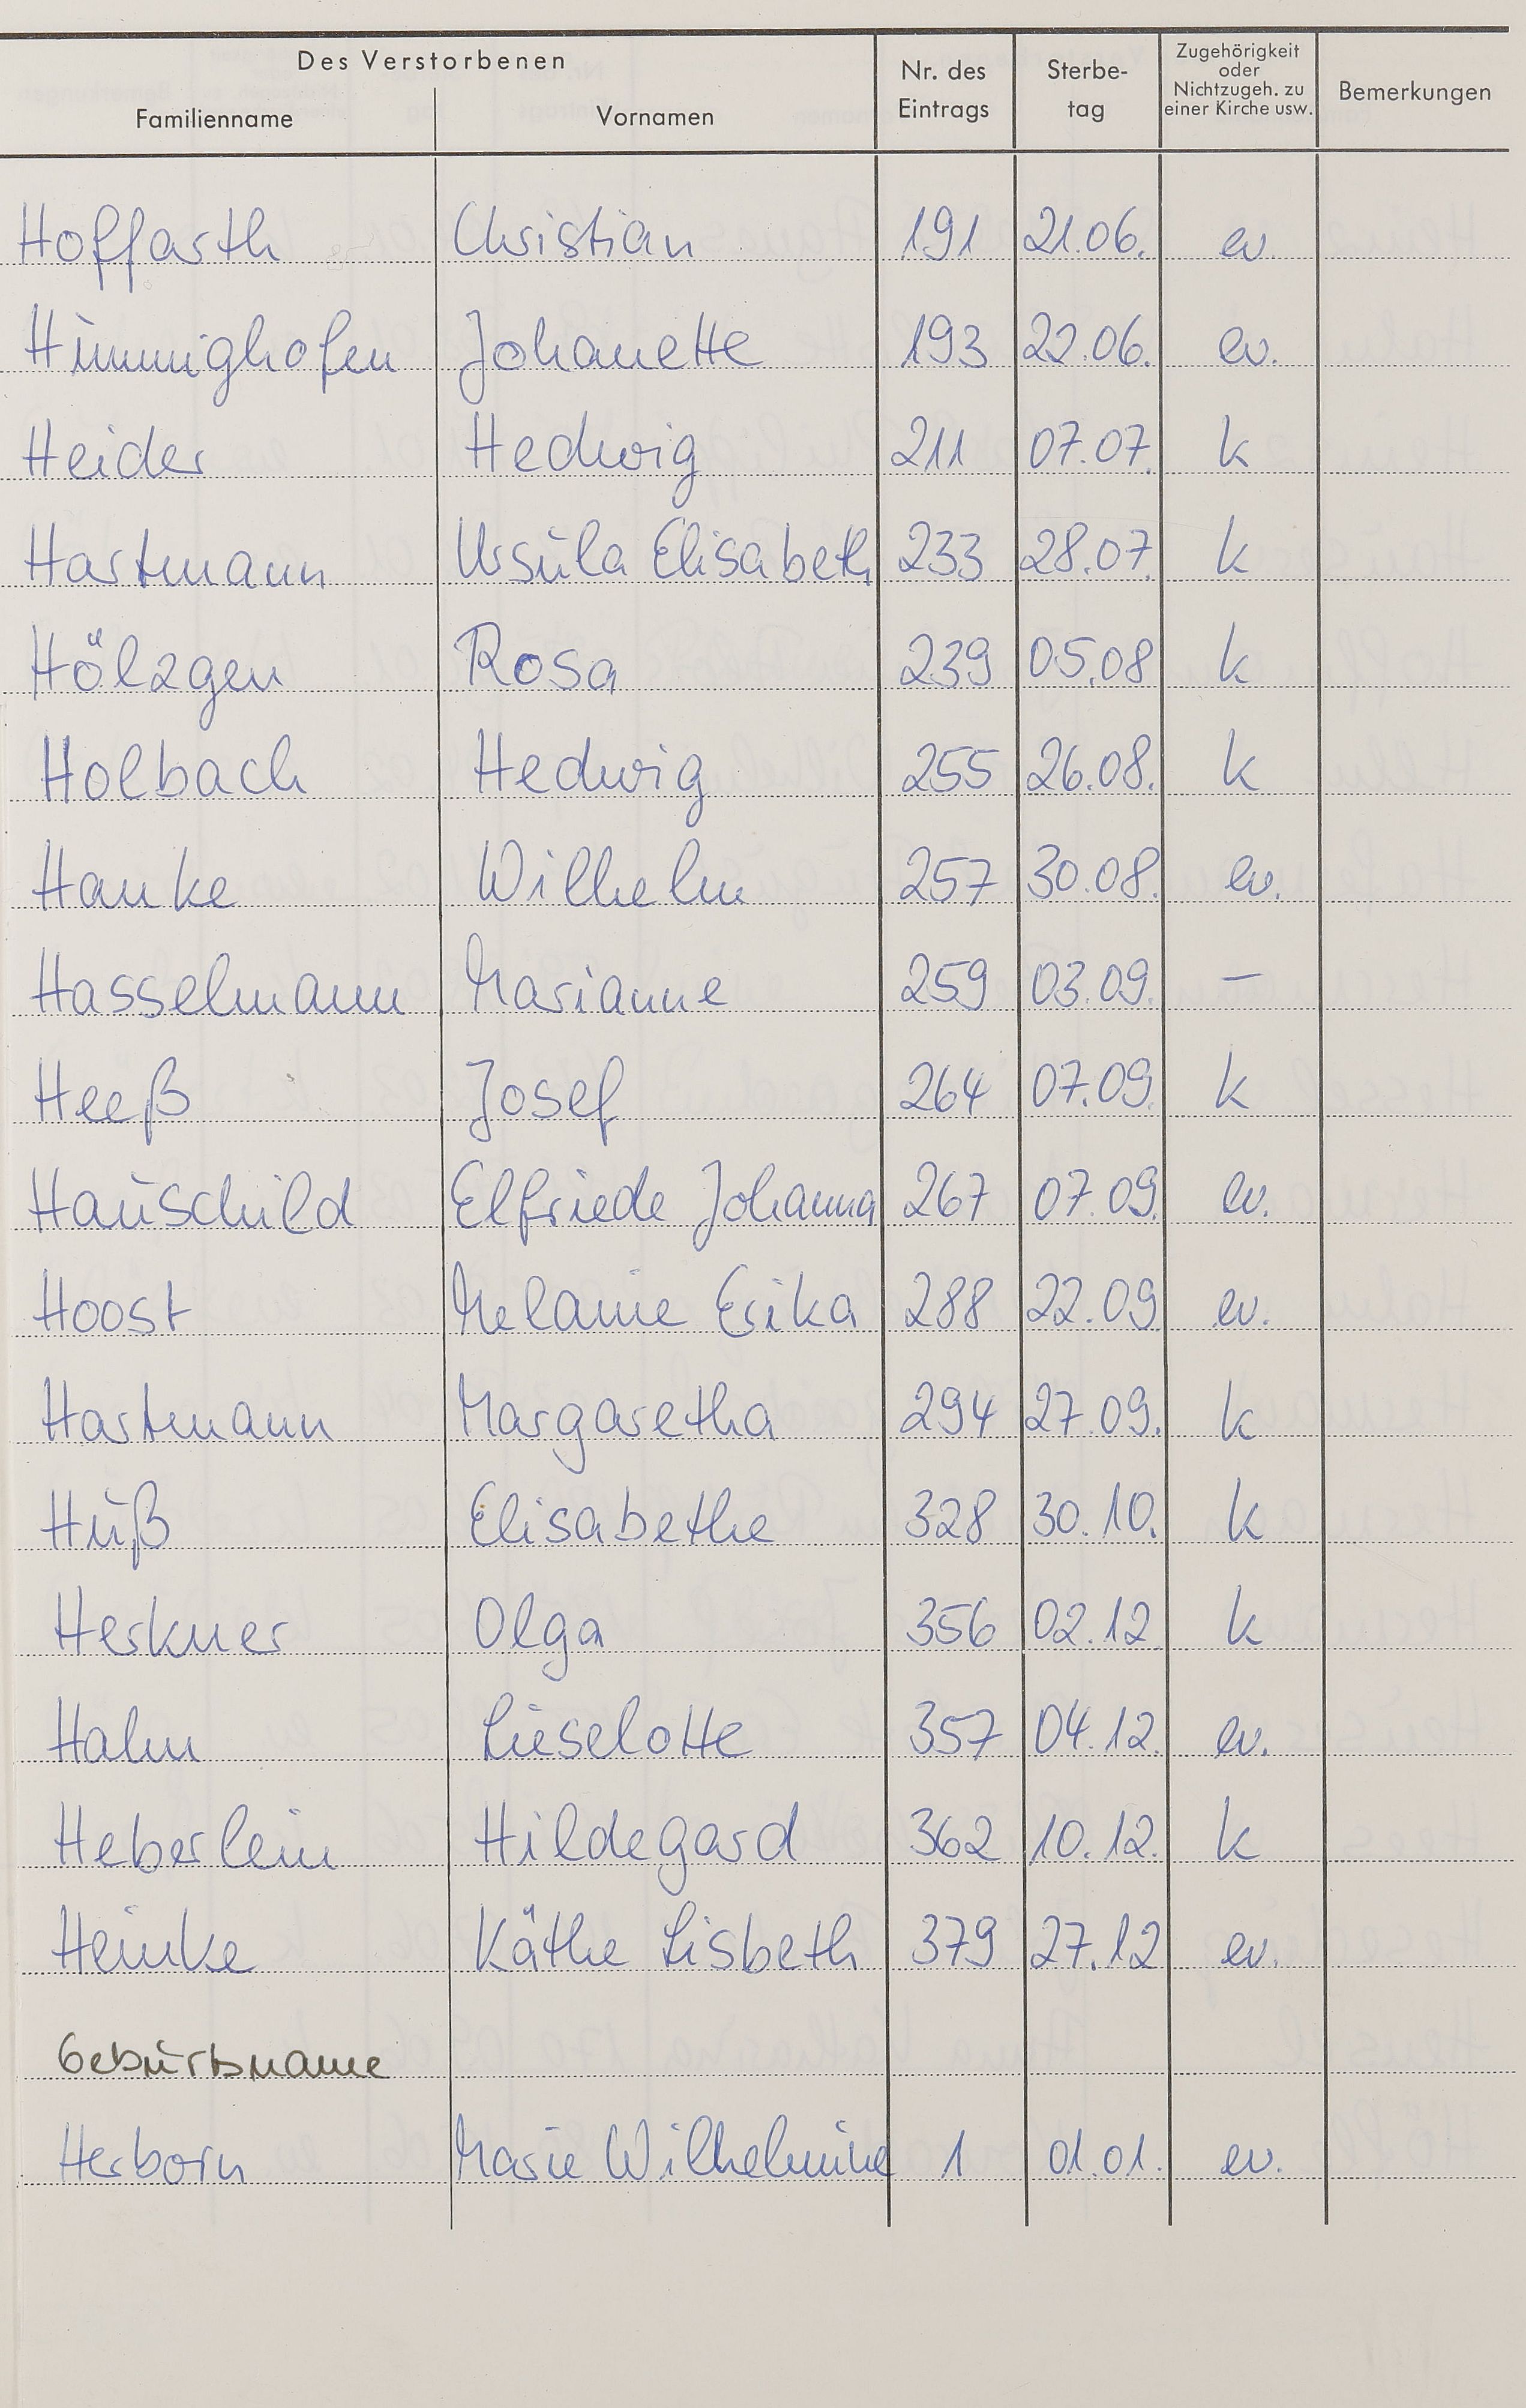 Des Verstorbenen
Familienname Vornamen Nr. des Eintrags Sterbe- tag Zugehörigkeit oder Nichtzugeh. zu einer Kirche usw. Bemerkungen
Hoffarth Christian 191 21.06. ev.
Himmighofen Johanette 193 22.06. ev.
Heider Hedwig 211 07.07. k
Hartmann Ursula Elisabeth 233 28.07. k
Hölzgen Rosa 239 05.08 k
Holbach Hedwig 255 26.08. k
Hanke Wilhelm 257 30.08. ev.
Hasselmann Marianne 259 03.09. –
Heeß Josef 264 07.09. k
Hauschild Elfriede Johanna 267 07.09. ev.
Hoost Melanie Erika 288 22.09 ev.
Hartmann Margaretha 294 27.09. k
Huß Elisabethe 328 30.10. k
Herkner Olga 356 02.12 k
Halm Lieselotte 357 04.12. ev.
Heberlein Hildegard 362 10.12. k
Heinke Käthe Lisbeth 379 27.12 ev.
Geburtsname
Herborn Marie Wilhelmine 1 01.01. ev.